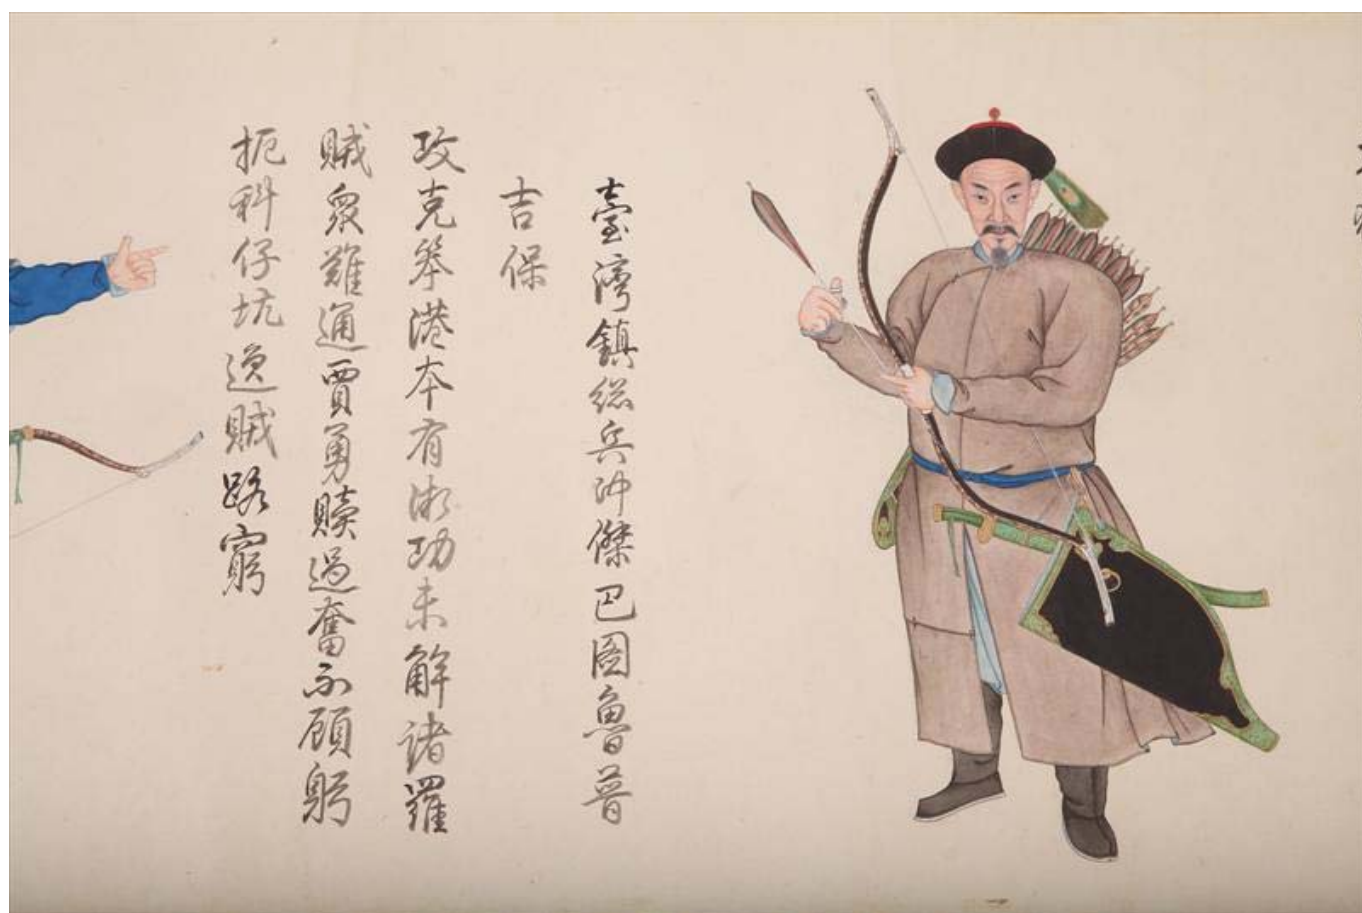 臺灣鎮總兵沖傑巴圖魯普
吉保
攻克笨港本有微功未解諸羅
賊眾難通賈勇贖過奮不顧躬
扼科仔坑逸賊路窮